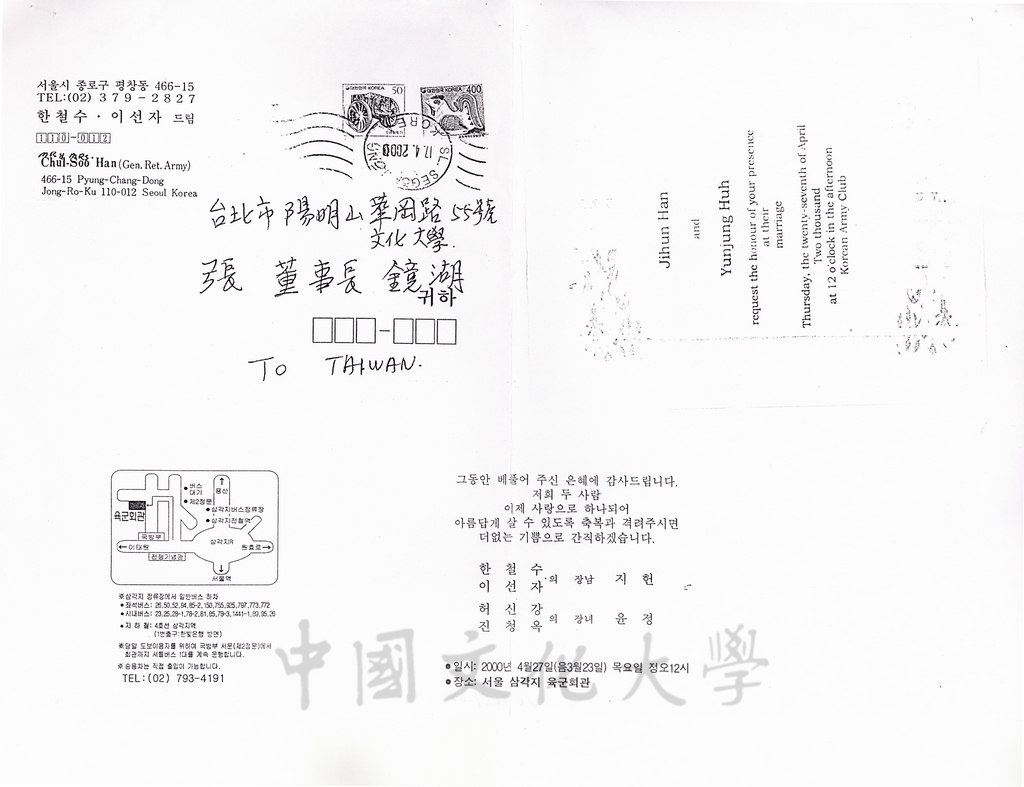 서울시 종로구 평창동 466-15
TEL:(02) 379-2827
한철수 · 이선자 드림
110-012
Chul-Soo Han (Gen. Ret. Army)
466-15 Pyung-Chang-Dong
Jong-Ro-Ku 110-012 Seoul Korea
대한민국 KOREA 50
대한민국 KOREA 400
17.4.2000
台北市 陽明山 華岡路 55號
文化大學.
張 董事長 鏡湖
귀하
TO TAIWAN.
Jihun Han
and
Yunjung Huh
request the honour of your presence
at their
marriage
Thursday, the twenty-seventh of April
Two thousand
at 12 o'clock in the afternoon
Korean Army Club
버스
대기
용산
제2정문
삼각지버스정류장
육군회관
삼각지전철역
국방부
이태원
삼각지R
원효로
전쟁기념관
서울역
※삼각지 정류장에서 일반버스 하차
지하철: 4호선 삼각지역
(1번출구:한빛은행 방면)
※당일 도보이용자를 위하여 국방부 서문(제2정문)에서
회관까지 셔틀버스 1대를 계속 운행합니다.
※승용차는 직접 출입이 가능합니다.
TEL:(02) 793-4191
그동안 베풀어 주신 은혜에 감사드립니다.
저희 두 사람
이제 사랑으로 하나되어
아름답게 살 수 있도록 축복과 격려주시면
더없는 기쁨으로 간직하겠습니다.
한철수
이선자 의 장남 지헌
허신강
진청옥 의 장녀 윤정
일시: 2000년 4월27일(음3월23일) 목요일 정오12시
장소: 서울 삼각지 육군회관
中國文化大學